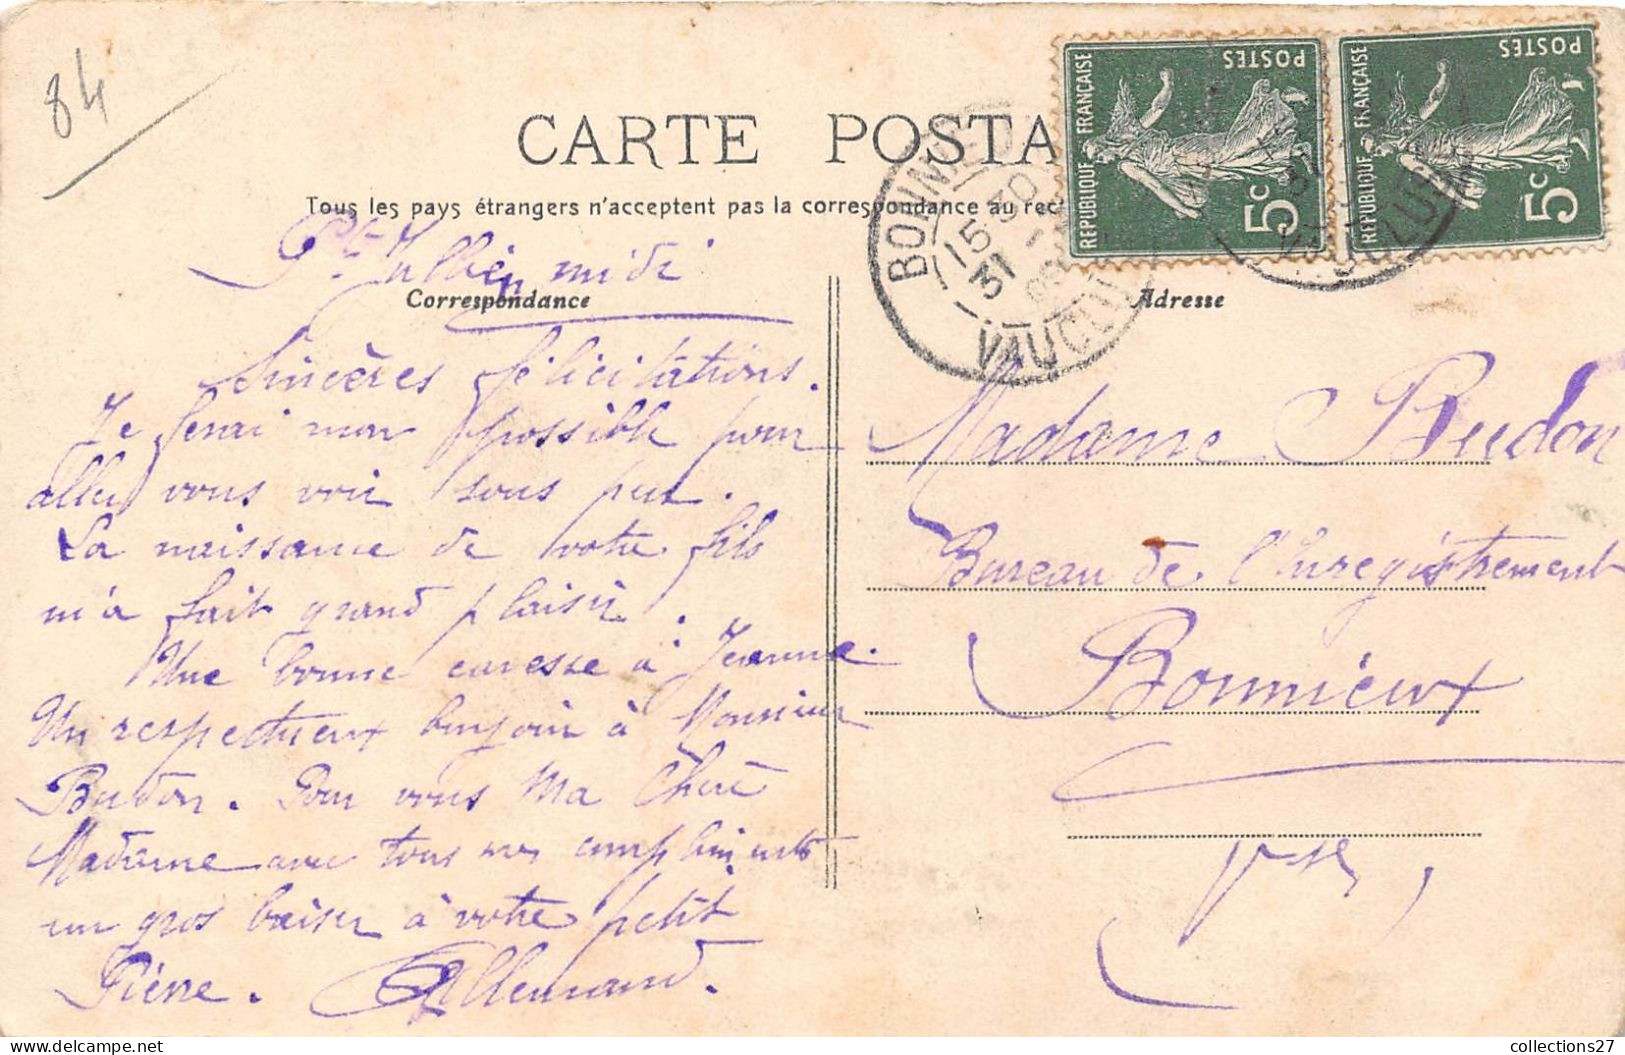 84
CARTE POSTA
Tous les pays étrangers n'acceptent pas la correspondance au rect
REPUBLIQUE FRANÇAISE
POSTES
5c
REPUBLIQUE FRANÇAISE
POSTES
5c
BONNIEU
15 30
31
VAUCLU
VAUCLUSE
Correspondance
Adresse
St Jullien midi
Sincères félicitations.
Je ferai mon possible pour
aller vous voir sous peu.
La naissance de votre fils
m'a fait grand plaisir.
Une bonne caresse à Jeanne.
Un respectueux bonjour à Monsieur
Budon. Pour vous Ma Chère
Madame avec tous mes compliments
un gros baiser à votre petit
Pierre. Allemand.
Madame Budon
Bureau de l'Enregistrement
Bonnieux
collections27